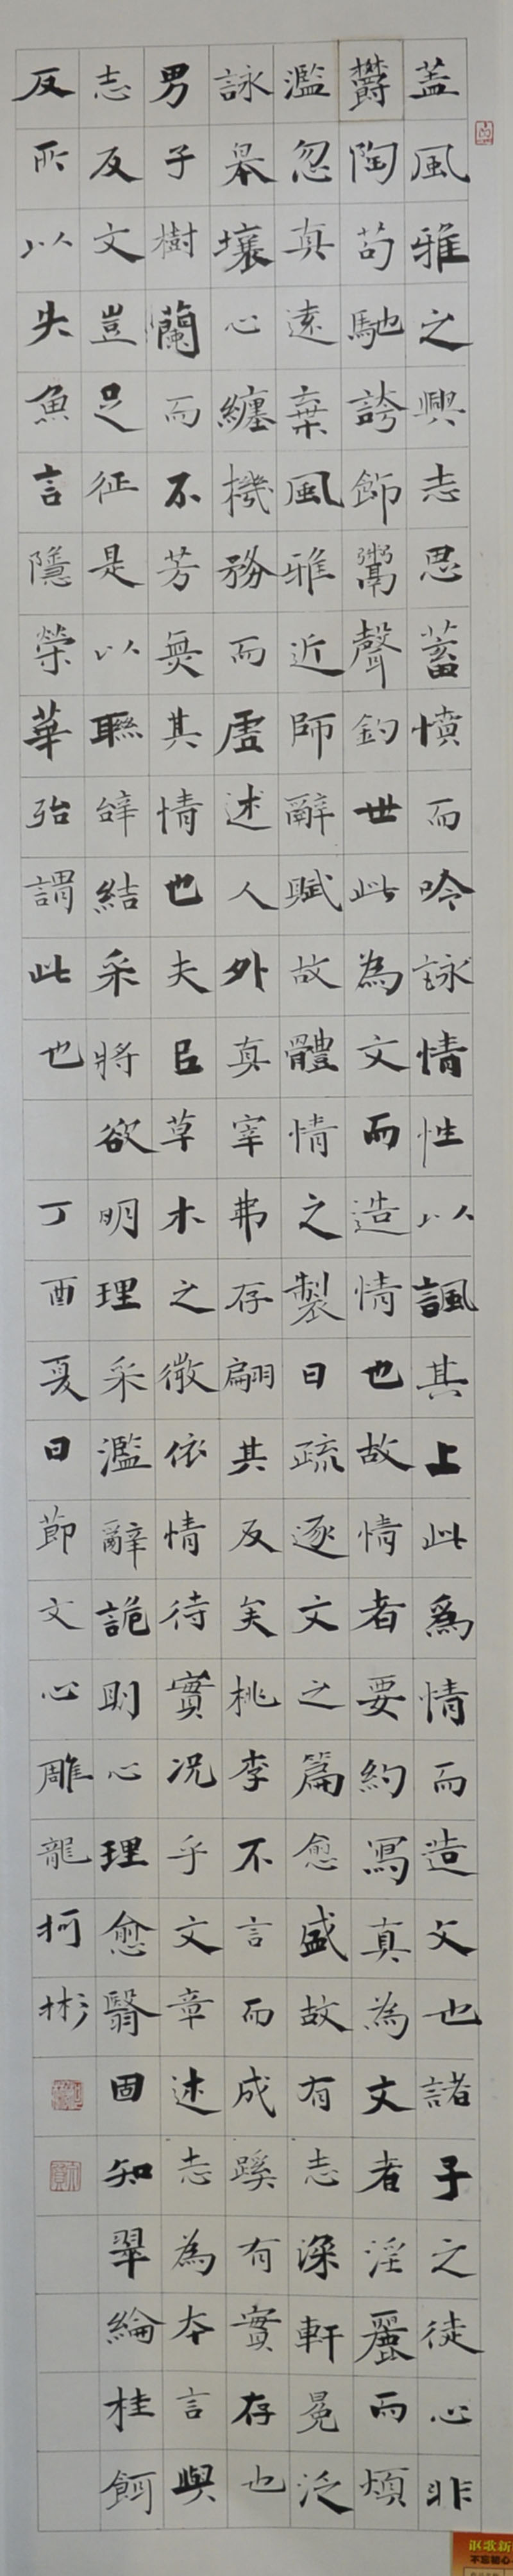 蓋風雅之興志思蓄憤而吟詠情性以諷其上此為情而造文也諸子之徒心非
鬱陶苟馳誇飾鬻聲釣世此為文而造情也故情者要約寫真為文者淫麗而煩
濫忽真遠棄風雅近師辭賦故體情之製日疏逐文之篇愈盛故有志深軒冕泛
詠皋壤心纏機務而虛述人外真宰弗存翩其反矣桃李不言而成蹊有實存也
男子樹蘭而不芳無其情也夫以草木之微依情待實況乎文章述志為本言與
志反文豈足征是以聯辭結采將欲明理采濫辭詭則心理愈翳固知翠綸桂餌
反所以失魚言隱榮華殆謂此也 丁酉夏日節文心雕龍柯彬
讴歌新
不忘初心